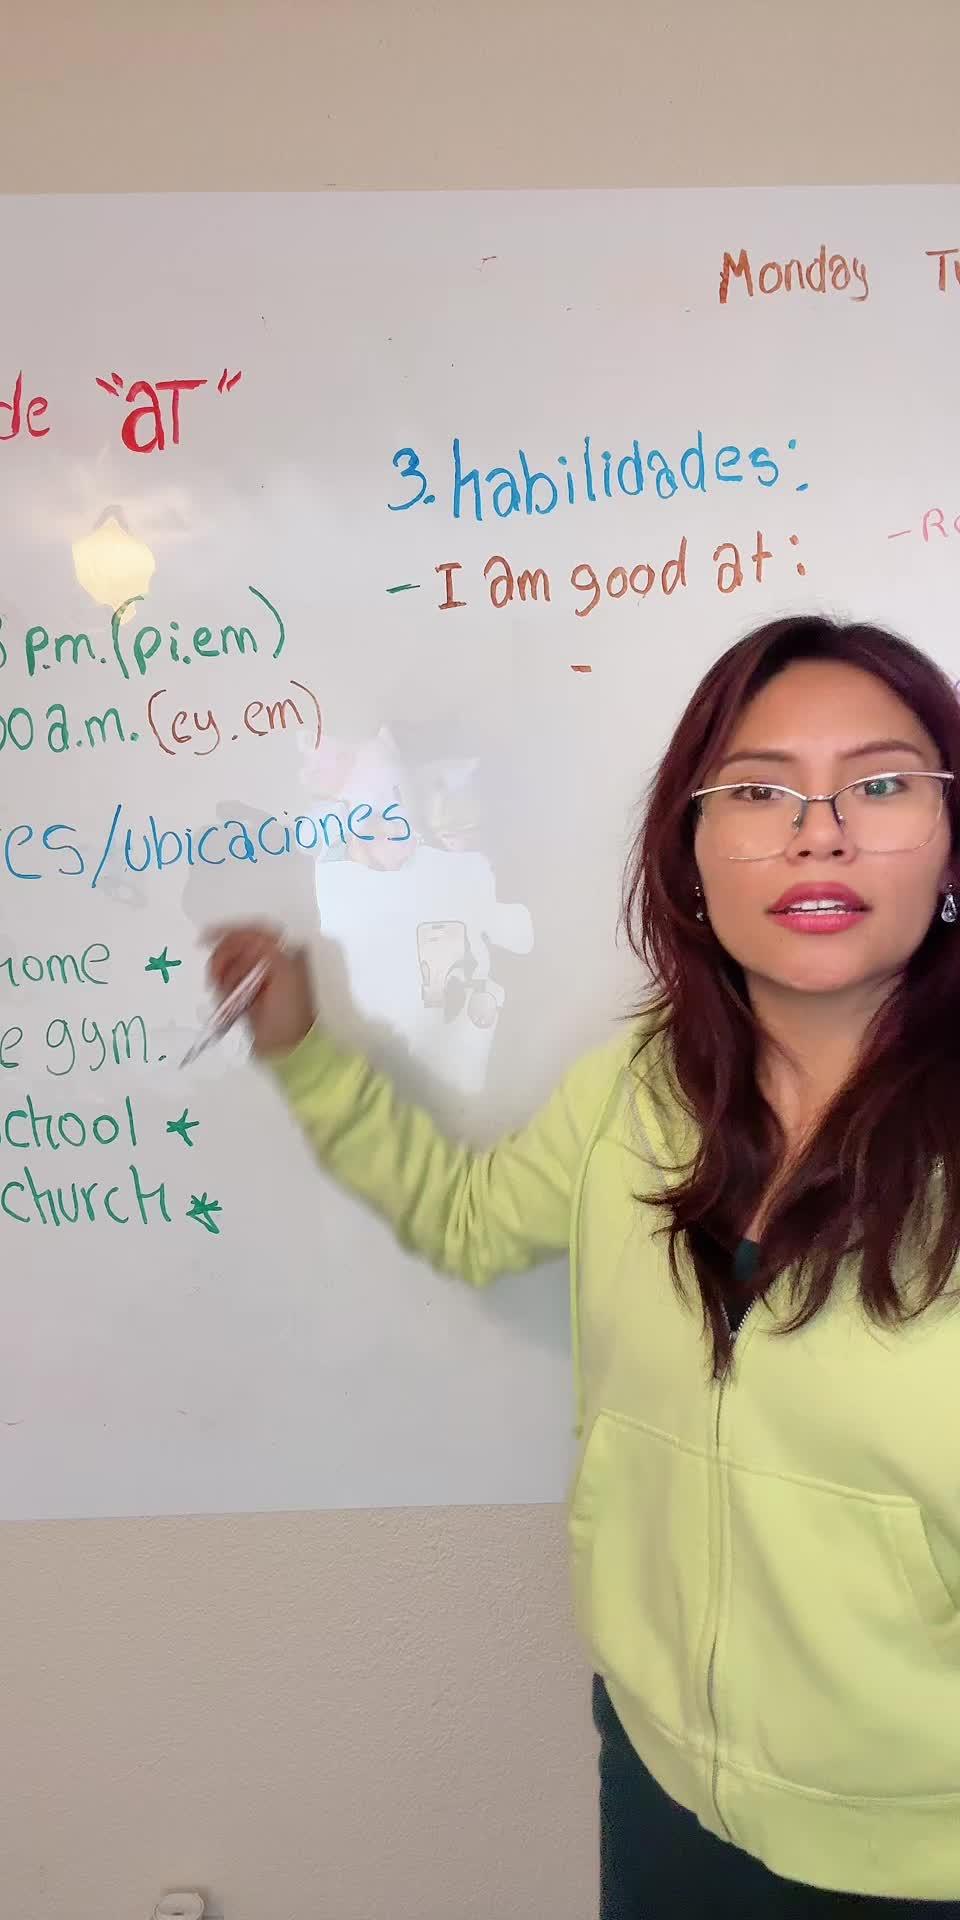 de "aT"
p.m. (pi.em)
00 a.m. (ey.em)
es/ubicaciones
home *
e gym.
school *
church *
Monday
3. habilidades:
- I am good at:
-